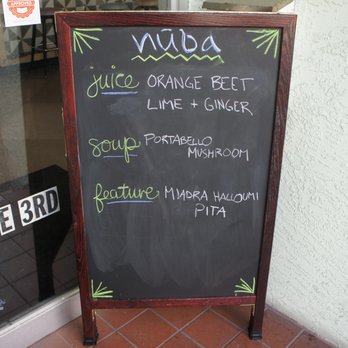 APPROVED
nüba
juice ORANGE BEET
LIME + GINGER
soup PORTABELLO
MUSHROOM
feature MJADRA HALLOUMI
PITA
E 3RD